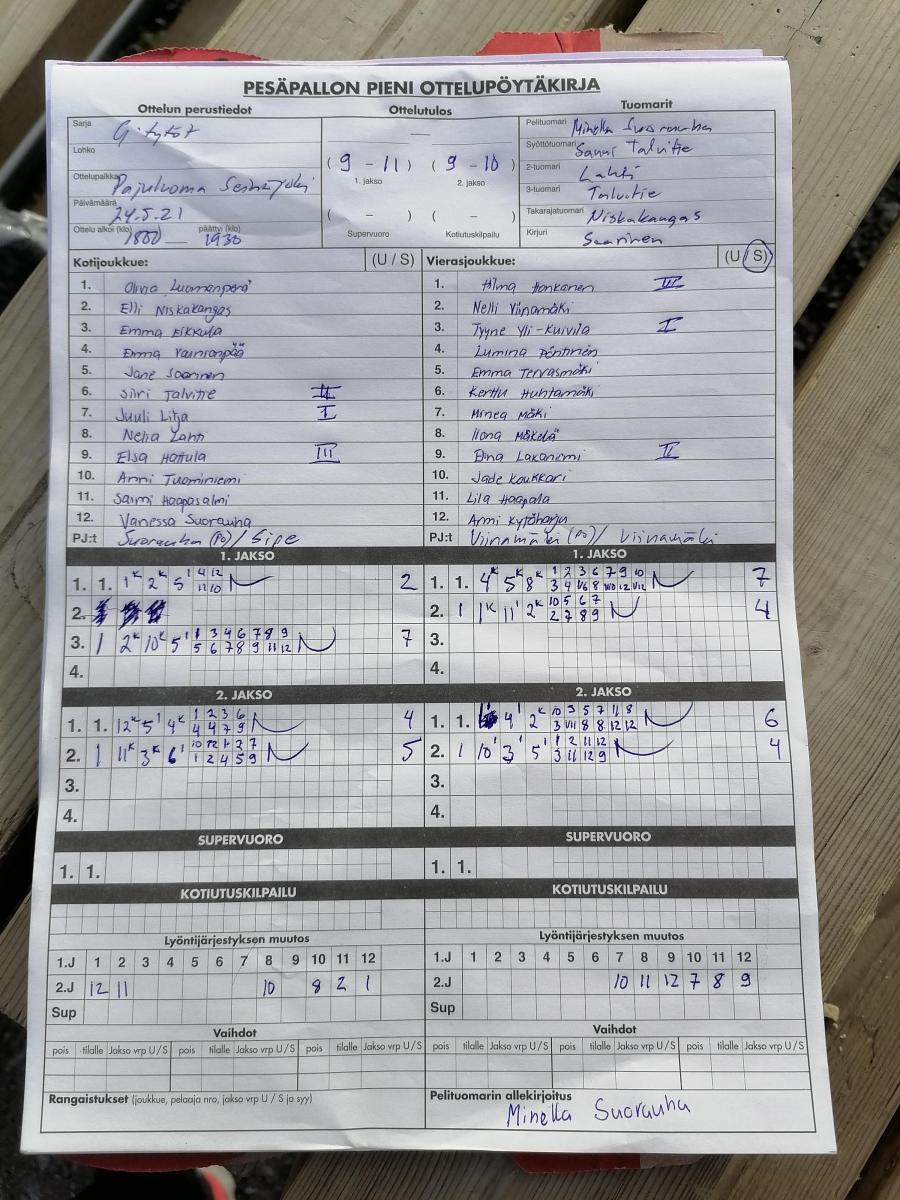 PESÄPALLON PIENI OTTELUPÖYTÄKIRJA
Ottelun perustiedot
Sarja G-tytöt
Lohko
Ottelupaikka Pajuluoma Seinäjoki
Päivämäärä 24.5.21
Ottelu alkoi (klo) 1800 päättyi (klo) 1930
Ottelutulos
( 9 - 11 ) ( 9 - 10 )
1. jakso 2. jakso
( - ) ( - )
Supervuoro Kotiutuskilpailu
Tuomarit
Pelituomari Minella Suorauha
Syöttötuomari Sanni Talvitie
2-tuomari Lahti
3-tuomari Talvitie
Takarajatuomari Niskakangas
Kirjuri Saarinen
Kotijoukkue: (U / S)
1. Olivia Luomanperä
2. Elli Niskakangas
3. Emma Eikkula
4. Emma Vainionpää
5. Jane Saarinen
6. Siiri Talvitie II
7. Juuli Lilja I
8. Nelia Lahti
9. Elsa Hattula III
10. Anni Tuominiemi
11. Saimi Haapasalmi
12. Vanessa Suorauha
PJ:t Suorauha (PO) / Sipe
Vierasjoukkue: (U / S)
1. Hilma Honkanen III
2. Nelli Viinamäki
3. Tyyne Yli-Kuivila I
4. Lumina Pöntinen
5. Emma Tervasmäki
6. Kerttu Huhtamäki
7. Minea Mäki
8. Ilona Mäkelä
9. Elina Lakaniemi II
10. Jade Koukkari
11. Lila Haapala
12. Armi Kytöharju
PJ:t Viinamäki (PO) / Viinamäki
1. JAKSO
1. 1. 1K 2K 5' 4 12 2
11 10
2.
3. 1 2K 10K 5' 1 3 4 6 7 8 9 7
5 6 7 8 9 11 12
4.
2. JAKSO
1. 1. 12K 5' 4K 1 2 3 6 4
4 4 7 9
2. 1 11K 3K 6' 10 12 1 2 7 5
1 2 4 5 9
3.
4.
SUPERVUORO
1. 1.
KOTIUTUSKILPAILU
Lyöntijärjestyksen muutos
1.J 1 2 3 4 5 6 7 8 9 10 11 12
2.J 12 11 10 8 2 1
Sup
Vaihdot
pois tilalle Jakso vrp U / S pois tilalle Jakso vrp U / S pois tilalle Jakso vrp U / S
Rangaistukset (joukkue, pelaaja nro, jakso vrp U / S ja syy)
1. JAKSO
1. 1. 4K 5K 8K 1 2 3 6 7 9 10 7
3 4 8 12
2. 1 1K 11' 2K 10 5 6 7 4
2 7 8 9
3.
4.
2. JAKSO
1. 1. 4' 2K 10 3 5 7 11 8 6
3 8 8 12 12
2. 1 10' 3' 5' 1 2 11 12 4
3 11 12 9
3.
4.
SUPERVUORO
1. 1.
KOTIUTUSKILPAILU
Lyöntijärjestyksen muutos
1.J 1 2 3 4 5 6 7 8 9 10 11 12
2.J 10 11 12 7 8 9
Sup
Vaihdot
pois tilalle Jakso vrp U / S pois tilalle Jakso vrp U / S pois tilalle Jakso vrp U / S
Pelituomarin allekirjoitus
Minella Suorauha